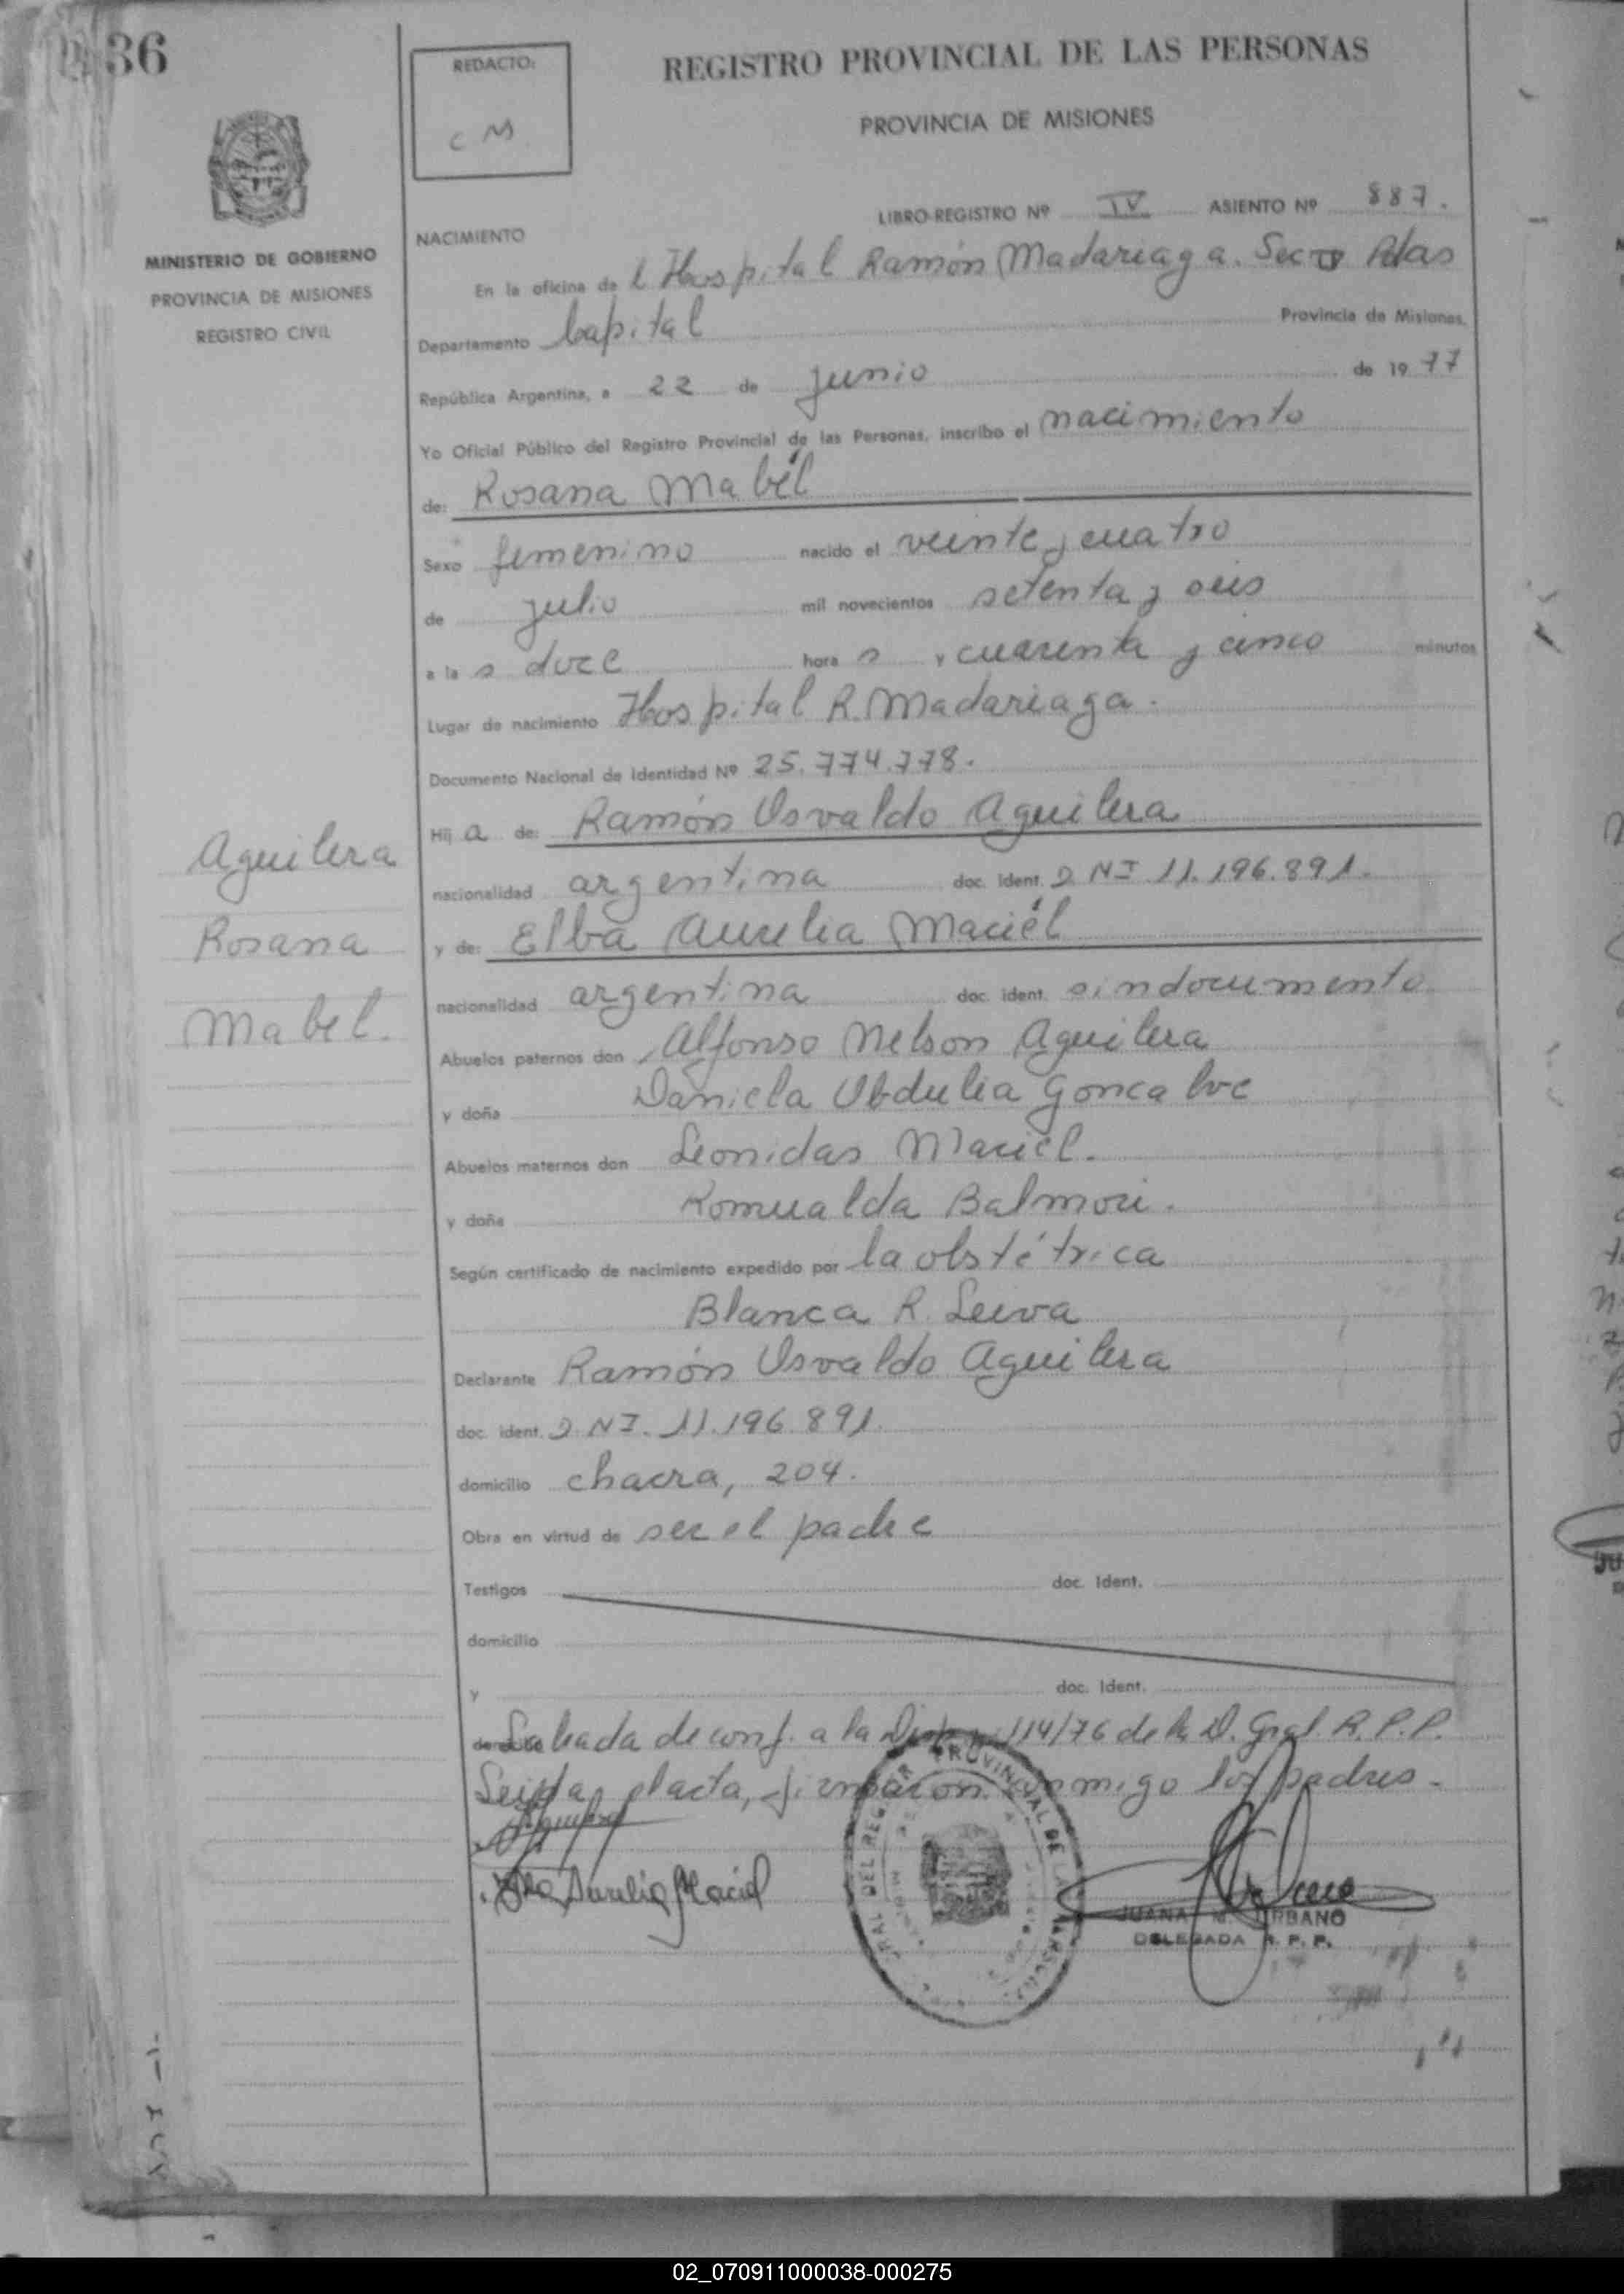 36
REDACTO:
C M
REGISTRO PROVINCIAL DE LAS PERSONAS
PROVINCIA DE MISIONES
MINISTERIO DE GOBIERNO
PROVINCIA DE MISIONES
REGISTRO CIVIL
LIBRO-REGISTRO Nº IV ASIENTO Nº 887.
NACIMIENTO
En la oficina de l Hospital Ramón Madariaga. Secc Pdas
Departamento Capital Provincia de Misiones,
República Argentina, a 22 de junio de 1977
Yo Oficial Público del Registro Provincial de las Personas, inscribo el nacimiento
de: Rosana Mabél
Sexo femenino nacido el veinte y cuatro
de julio mil novecientos setenta y seis
a la s doce hora s y cuarenta y cinco minutos
Lugar de nacimiento Hospital R. Madariaga.
Documento Nacional de Identidad Nº 25.774.778.
Hij a de: Ramón Osvaldo Aguilera
nacionalidad argentina doc. ident. DNI 11.196.891.
y de: Elba Aurelia Maciél
nacionalidad argentina doc. ident. sin documento
Abuelos paternos don Alfonso Nelson Aguilera
y doña Daniela Obdulia Goncalve
Abuelos maternos don Leonidas Maciel.
y doña Romualda Balmori.
Según certificado de nacimiento expedido por la obstétrica
Blanca R. Leiva
Declarante Ramón Osvaldo Aguilera
doc. ident. DNI. 11.196.891.
domicilio chacra, 204.
Obra en virtud de ser el padre
Testigos doc. Ident.
domicilio
y doc. Ident.
Labrada de conf. a la Disp. 114/76 de la D. Gral. R.P.P.
Leida el acta, firmaron conmigo los padres.
Aguilera
Rosana
Mabel.
Elba Aurelia Maciel
JUANA M. URBANO
DELEGADA R. P. P.
02_070911000038-000275